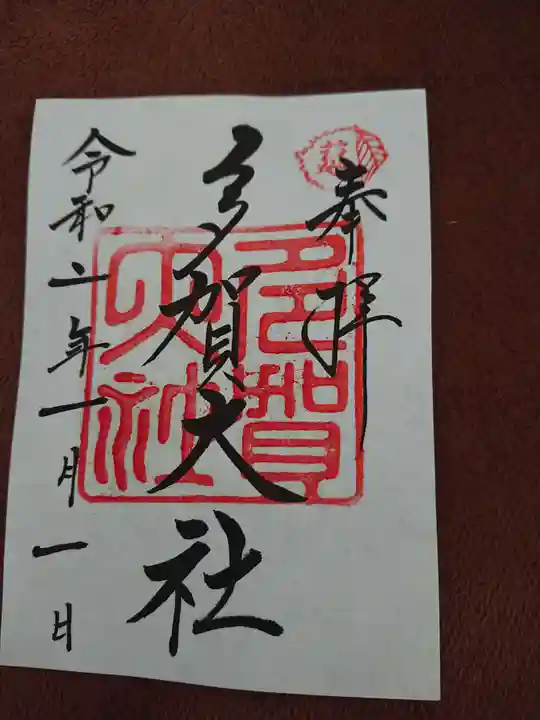 奉拝
多賀大社
多賀大社
令和二年一月一日